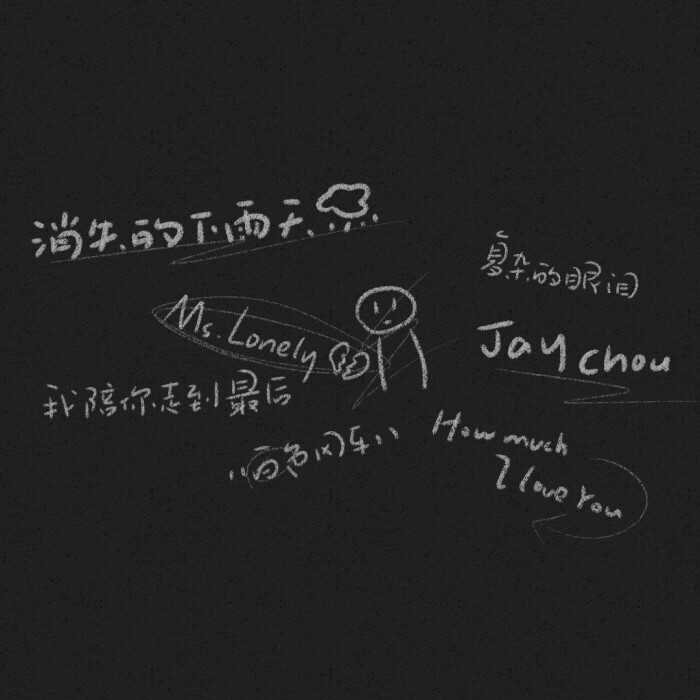 消失的下雨天
复杂的眼泪
Ms. Lonely
Jay chou
我陪你走到最后
“白色风车”
How much
I love You